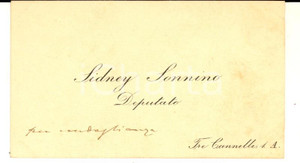 Sidney Sonnino
Deputato
per condoglianze
Tre Cannelle 1 A.